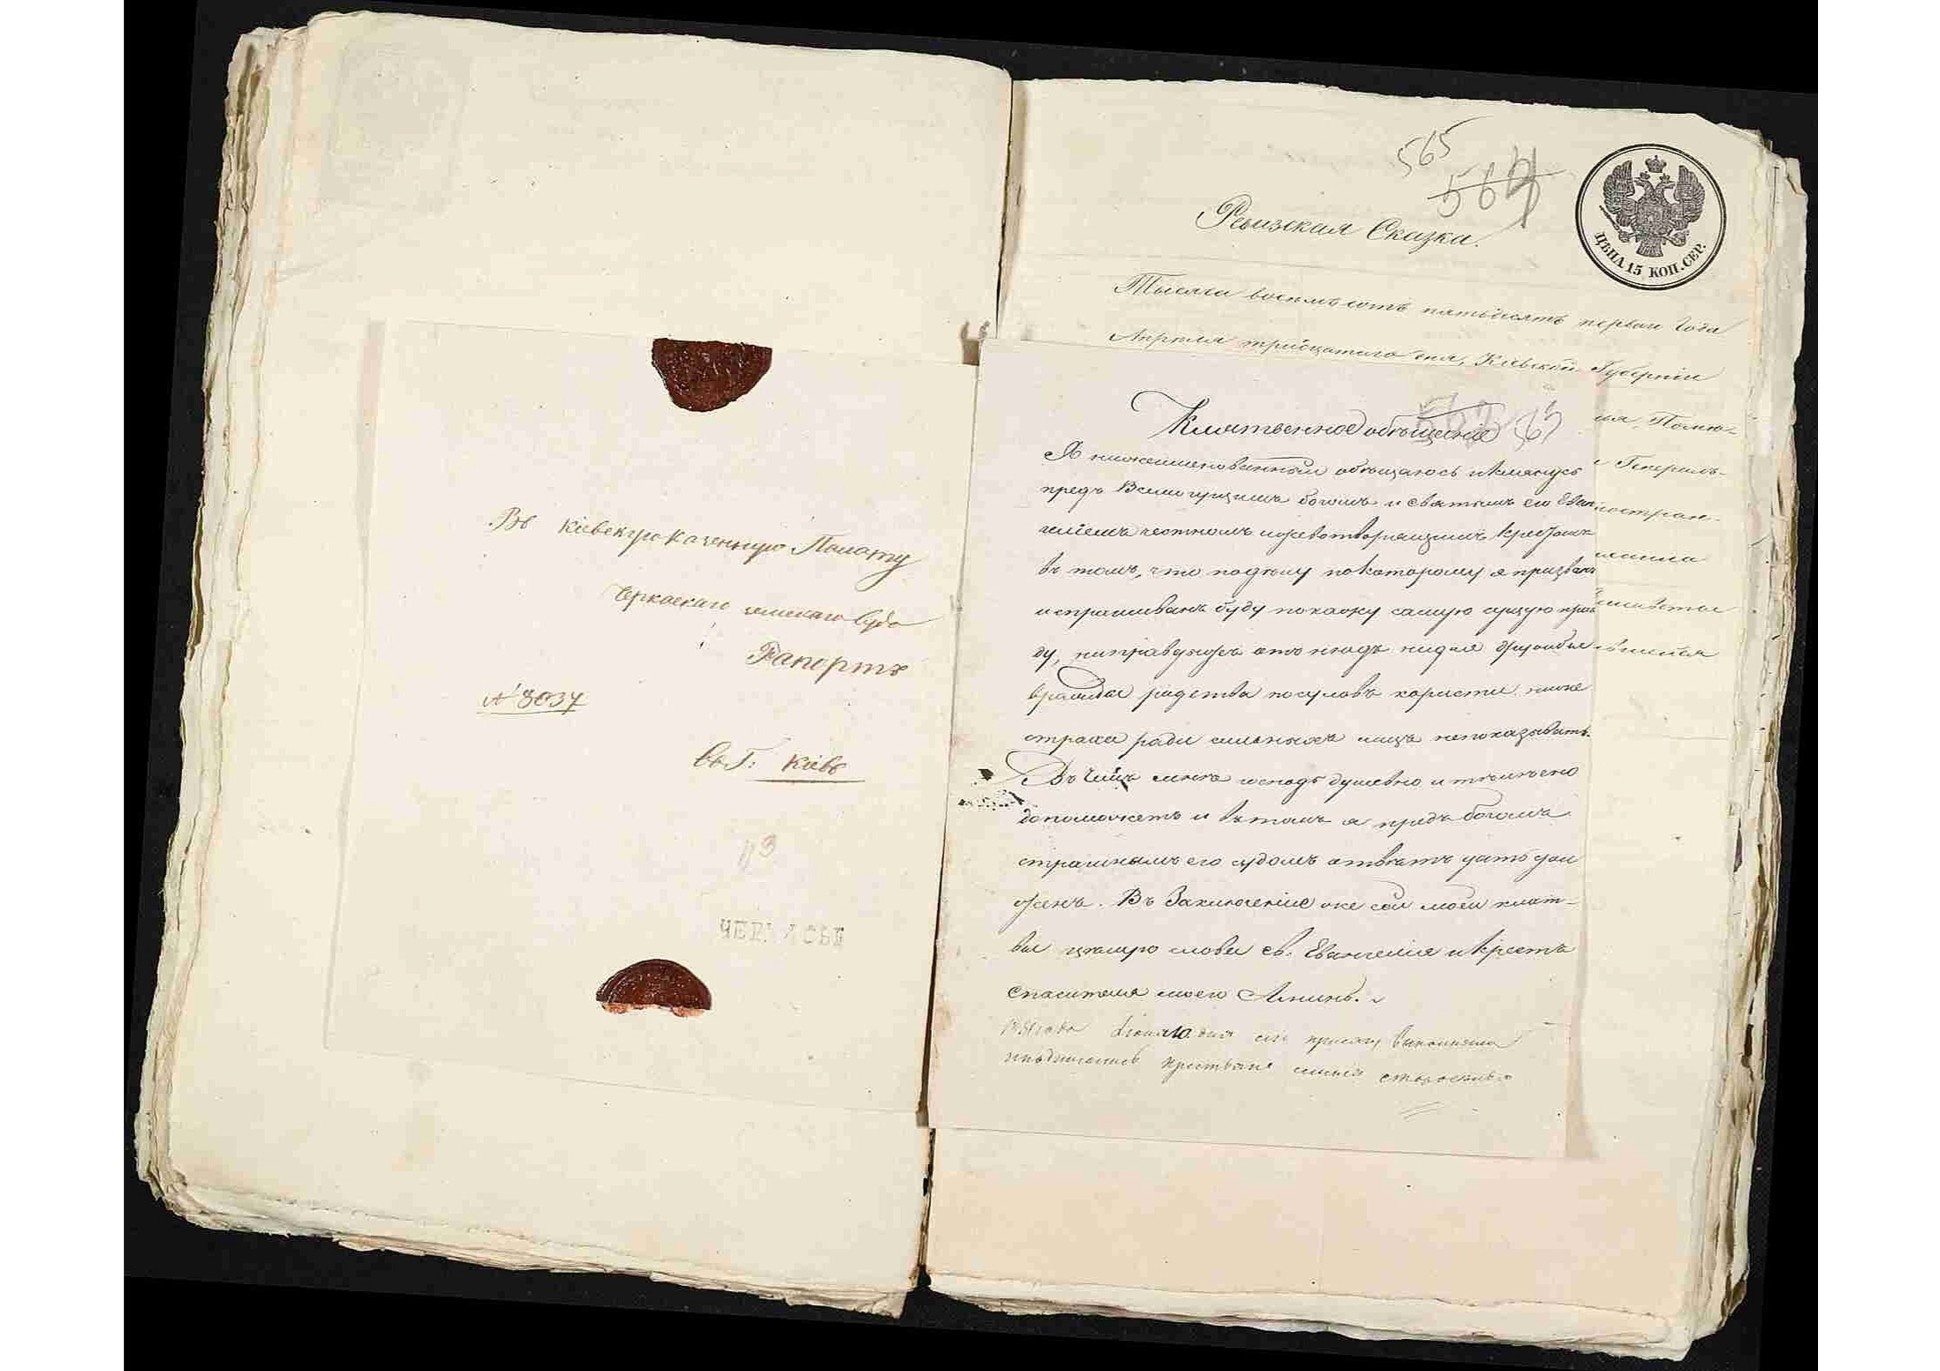 Въ Кіевскую Казенную Палату
Черкаскаго земскаго Суда
Рапортъ
№ 8037
въ Г: Кіевъ
113
ЧЕРКАСЫ
565
564
Ревизская Сказка.
ЦѢНА 15 КОП. СЕР.
Тысяча восемъ сотъ пятьдесятъ перваго Года
Апреля тридцатаго дня, Кіевской Губерніи
Клятвенное обѣщаніе
Я нижеименованный обѣщаюсь и клянусь
предъ Всемогущимъ богомъ и святымъ его Еван
геліемъ честномъ и животворящимъ крестомъ
въ томъ, что по дѣлу по которому я призванъ
и спрашиванъ буду покажу самую сущую прав
ду, не норовя отъ нюдь ни для дружбы
вражды родства посуловъ корысти ниже
страха ради сильныхъ лицъ непоказывать.
Въ чемъ мнѣ господь душевно и тѣлесно
да поможетъ и въ томъ я предъ богомъ
страшнымъ его судомъ отвѣтъ дать дол
женъ. Въ Заключеніе же сей моей клят-
вы цѣлую слова св. Евангелія и Крестъ
Спасителя моего Аминь.
1851 года дня сію присягу выполняли
крестьяне